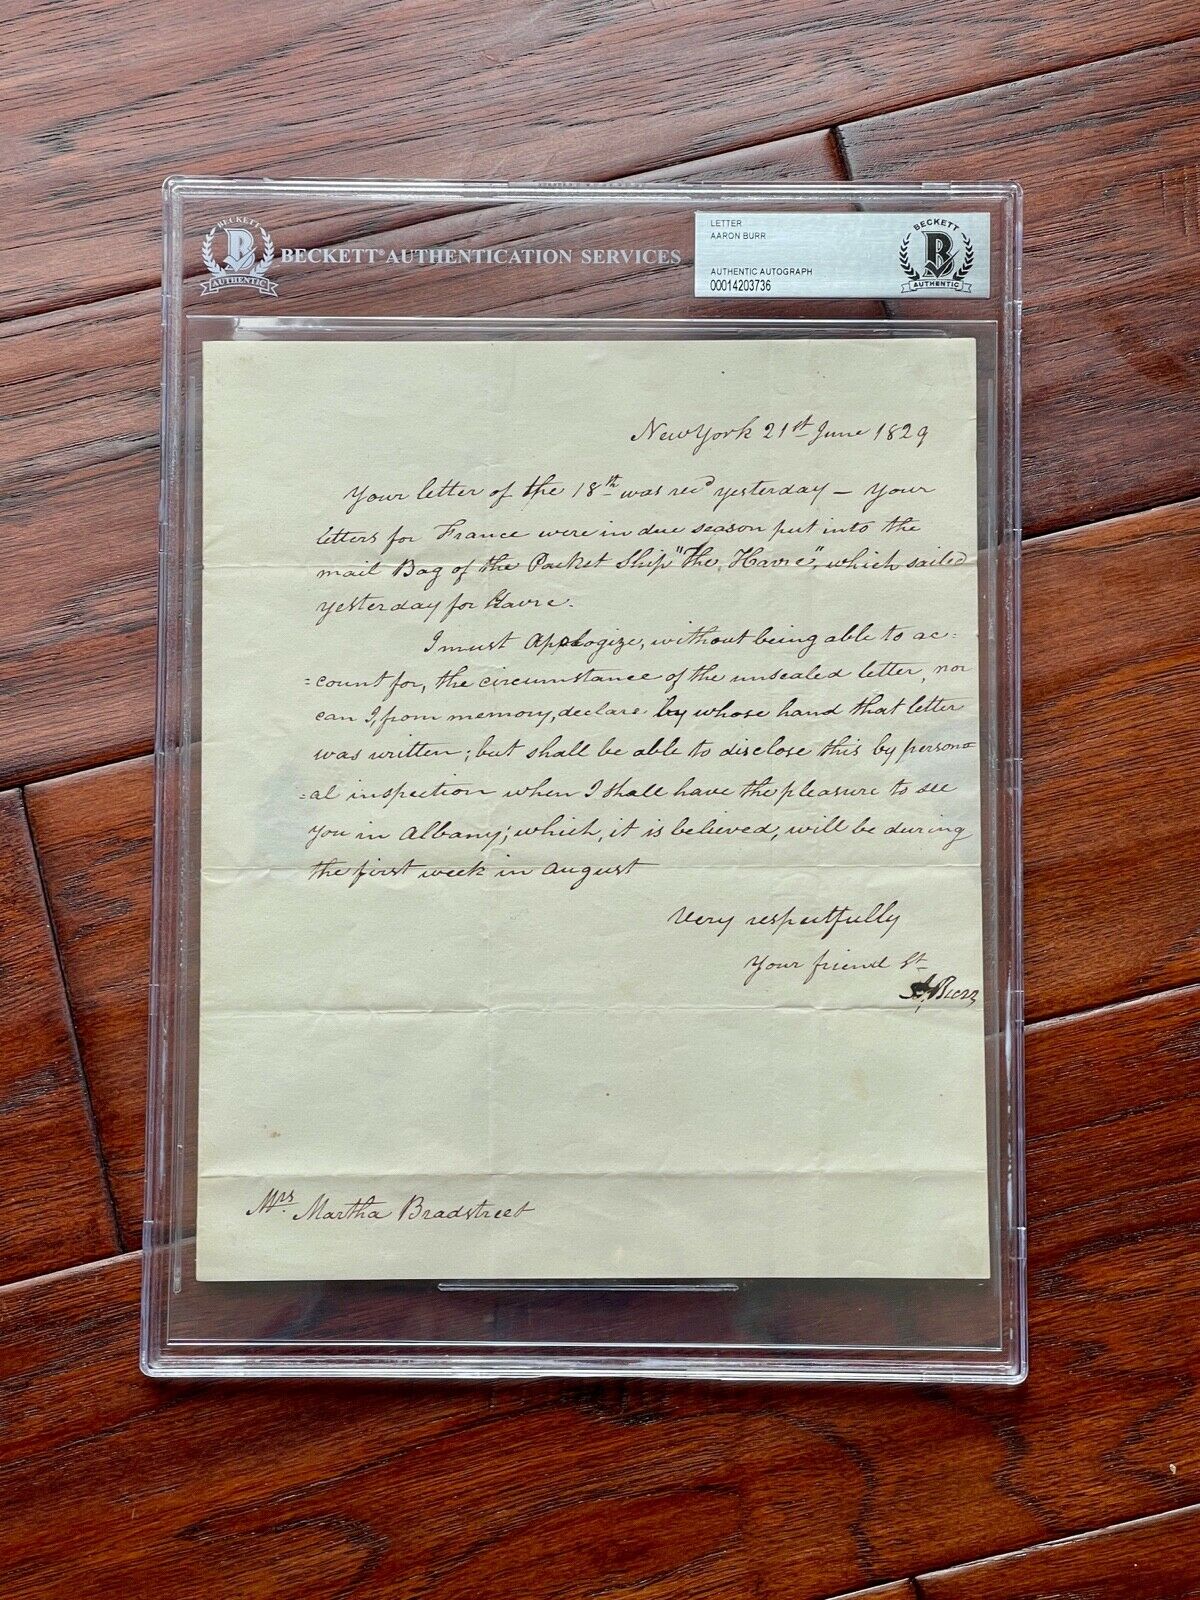 BECKETT
B
AUTHENTIC
BECKETT® AUTHENTICATION SERVICES
LETTER
AARON BURR
AUTHENTIC AUTOGRAPH
00014203736
BECKETT
B
AUTHENTIC
New York 21st June 1829
Your letter of the 18th was recd yesterday — Your
letters for France were in due season put into the
mail Bag of the Packet Ship "The Havre", which sailed
yesterday for Havre.
I must Apologize, without being able to ac=
=count for, the circumstance of the unsealed letter, nor
can I, from memory, declare by whose hand that letter
was written; but shall be able to disclose this by person=
=al inspection when I shall have the pleasure to see
you in Albany; which, it is believed, will be during
the first week in August
Very respectfully
Your friend St
A, Burr
Mrs. Martha Bradstreet